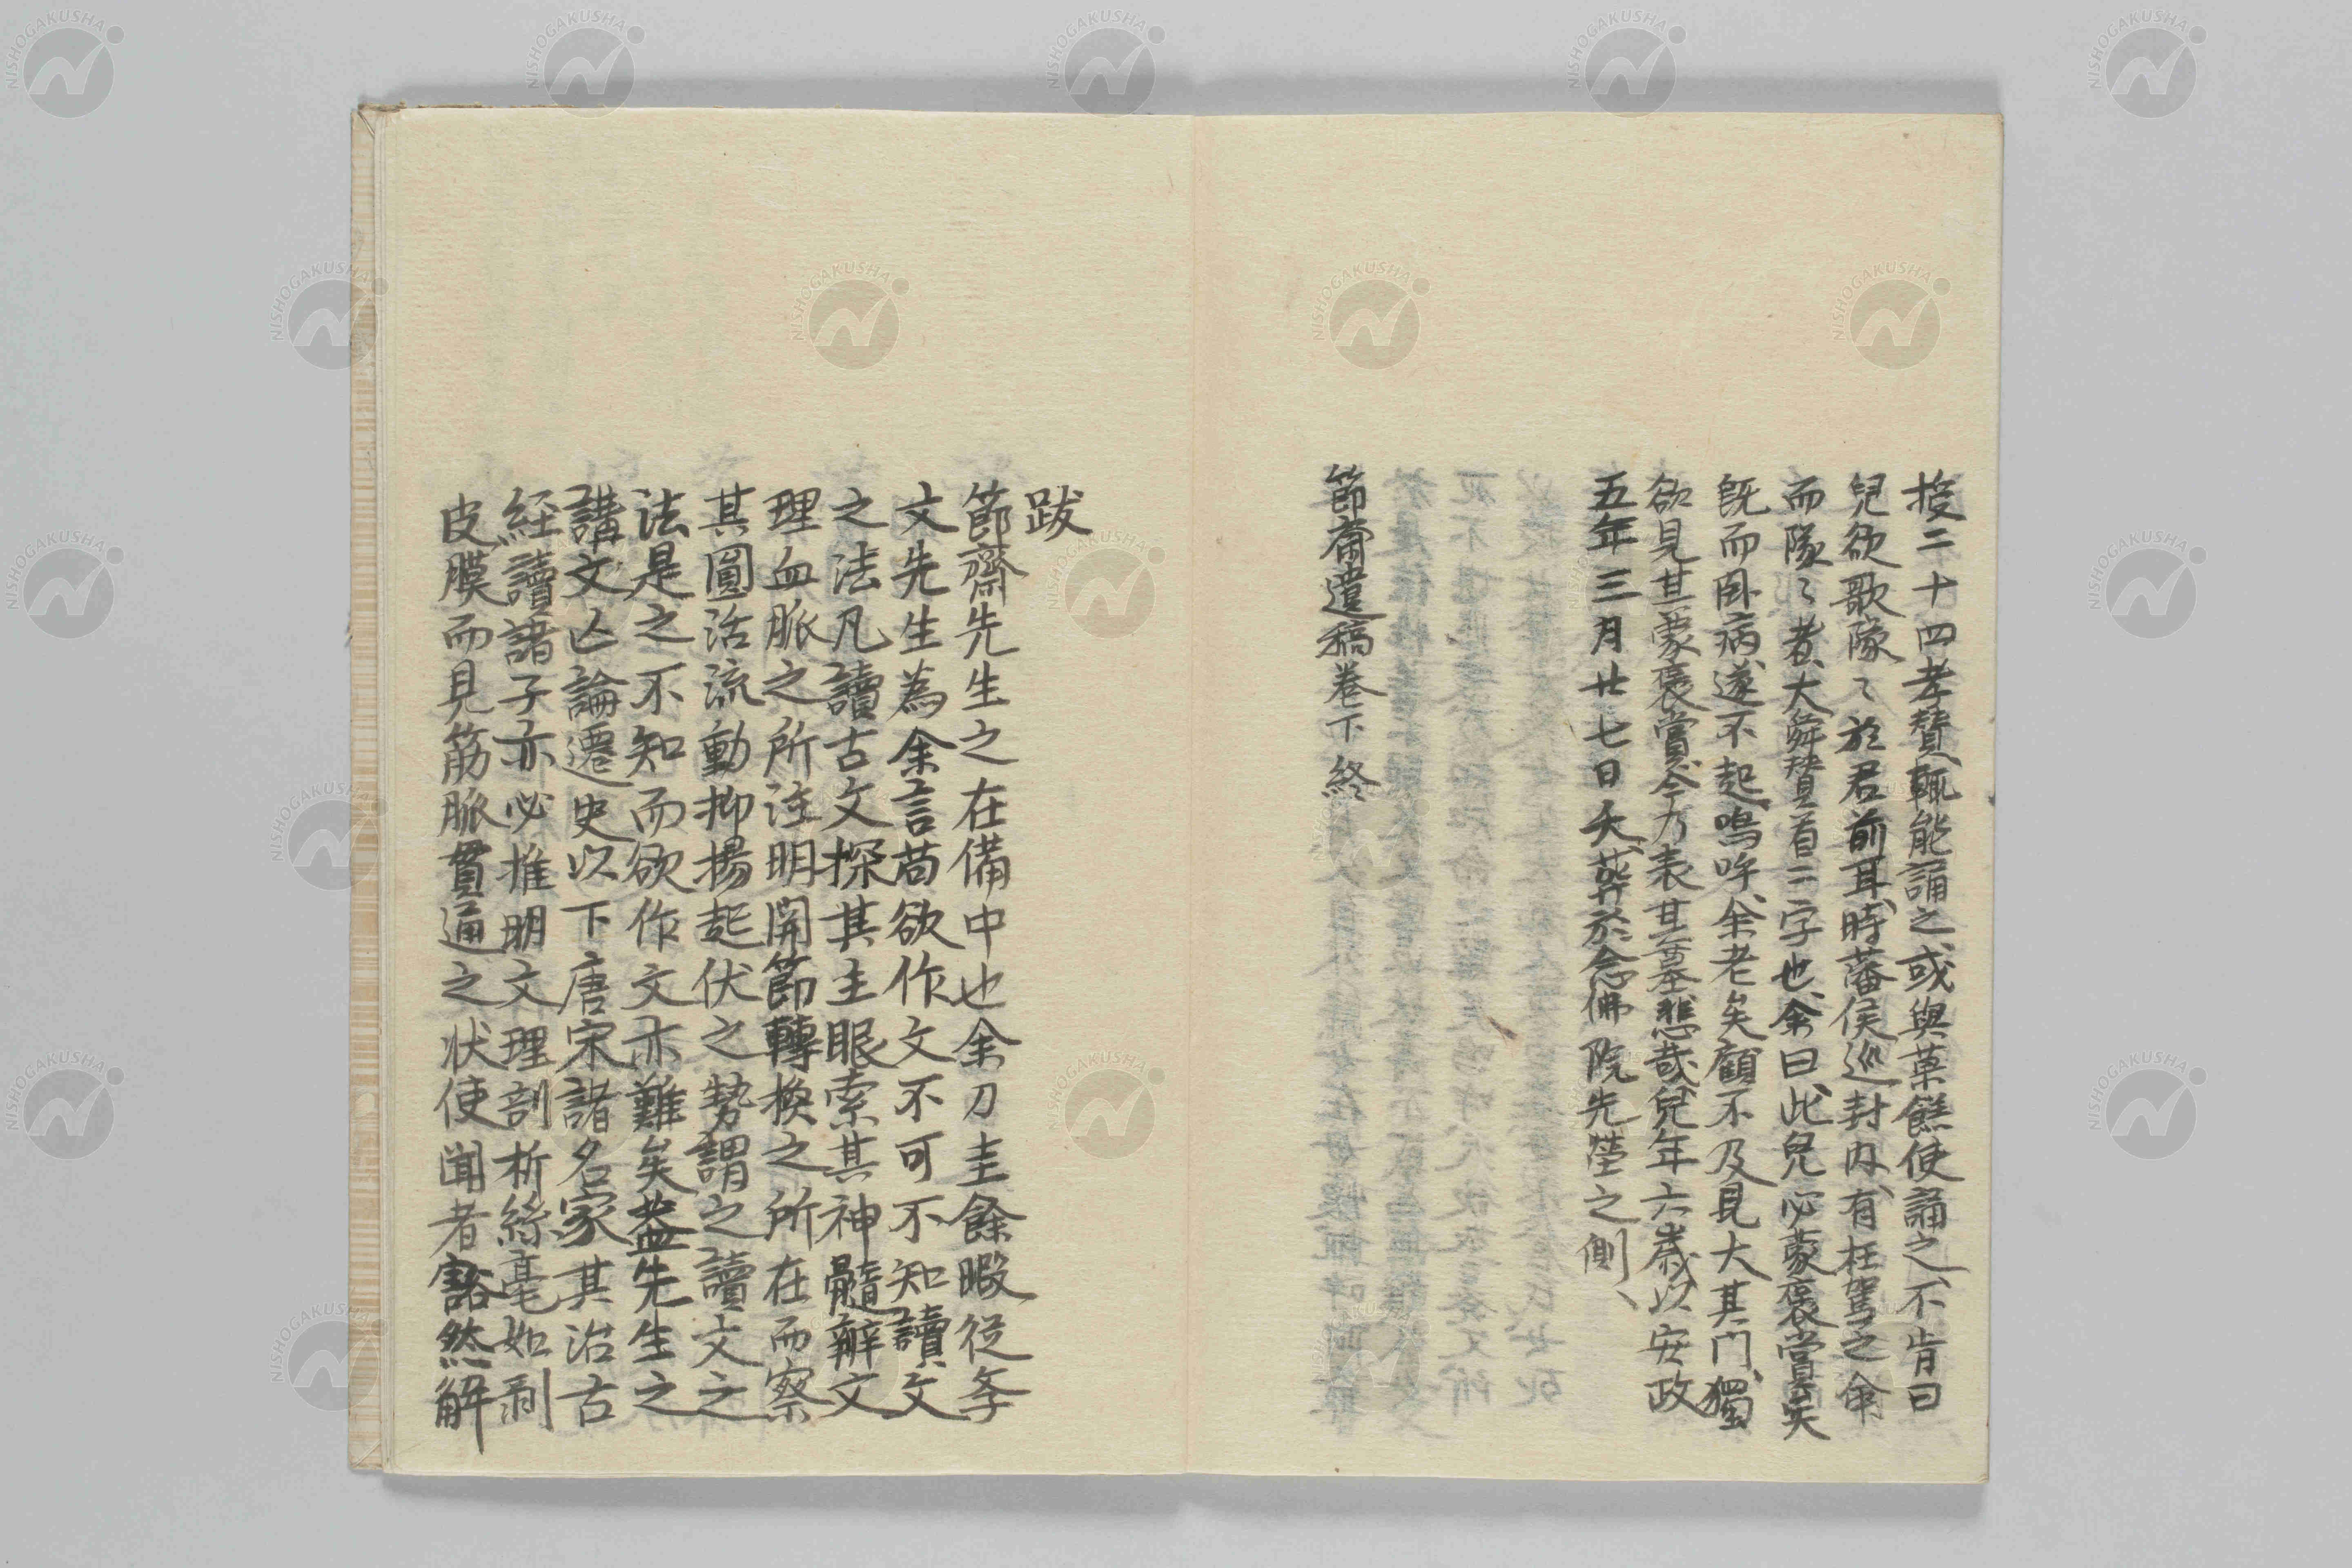 授二十四孝賛、輒能誦之、或與菓餻使誦之、不肯曰
兒欲歌隊〻於君前耳、時藩侯巡封内、有枉駕之命
而隊〻者、大舜賛首二字也、余曰、此兒必蒙褒賞矣
既而卧病、遂不起、嗚呼、余老矣、顧不及見大其門、獨
欲見其蒙褒賞、今乃表其墓、悲哉、兒年六歳、以安政
五年三月廿七日夭、葬於念佛院先塋之側、
節齋遺稿巻下終
跋
節齋先生之在備中也余刀圭餘暇從受
文先生為余言苟欲作文不可不知讀文
之法凡讀古文探其主眼索其神髓辯文
理血脈之所注明開節轉換之所在而察
其圓活流動抑揚起伏之勢謂之讀文之
法是之不知而欲作文亦難矣盖先生之
講文必論遷史以下唐宋諸名家其治古
経讀諸子亦必推明文理剖析絲毫如剥
皮膜而見筋脈貫通之状使聞者豁然解
NISHOGAKUSHA